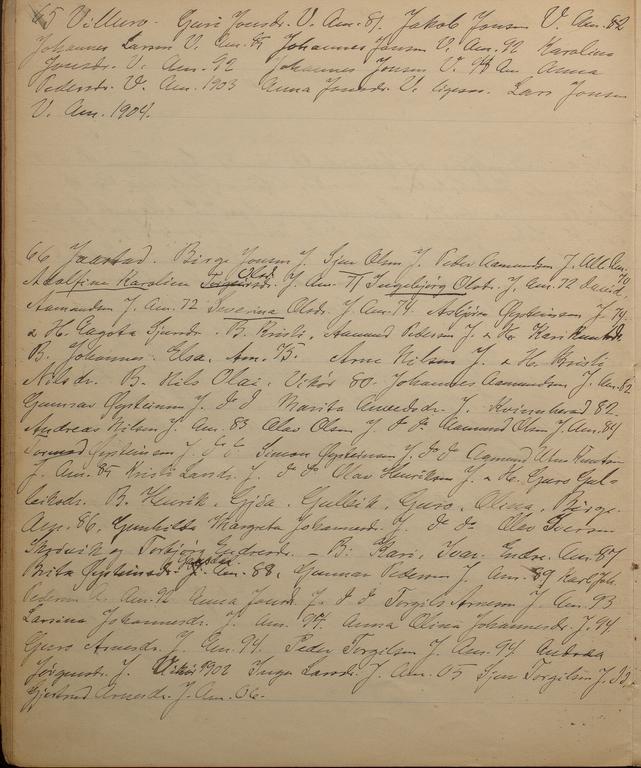 65 Villuro. Guri Jonsdr. V. Am. 81 Jakob Jonsen V. Am. 82
Johannes Larsen V. Am. Johannes Jonsen V. Am. 92 Karolina
Jonsdr. V. Am. 92 Johannes Jonsen V. Am Anna
Pedersdr. V. Am. 1903 Anna Jonsdr. V. Lars Jonsen
V. Am. 1904.
66 Jaastad. Birge Jonsen J. Sjur Olsen J. Peder Aamundsen J. Alle Am. 70
Adolfine Karoline Olsd. J. Am. 71 Ingebjörg Olsdr. J. Am. 72 David
Aamundsen J. Am. 72 Severina Olsdr. J. Am. 74. Asbjörn Öysteinsen J. 74.
& H. Aagota Sjursdr. B. Kristi, Aamund Pedersen J. & H. Kari
B. Johannes. Elsa. Am. 75. Arne Nilsen J. & H. Kristi
Nilsdr. B. Nils Olai, Vikör 80. Johannes Aamundsen J. Am. 82
Gunnar Öysteinsen J. Marita J. Kvinnherad 82.
Andreas Nilsen J. Am. 83 Olav Olsen J. Aamund Olsen J. Am. 84
Öysteinsen J. Simon Öysteinsen J.
J. Am. 85 Kristi Larsdr. J. Olav Henriksen J. & H. Guro Gul-
leiksdr. B. Henrik, Gjöa, Gulleik, Guro, Olina, Birge.
Am. 86. Gunhilde Margreta Johannesdr. J. Olav Iversen
Skrövik og Torbjörg - B: Kari, Ivar. Endre. Am. 87
Brita Öysteinsdr. J. Am. 88, Gunnar Pedersen J. Am. 89
Pedersen Am. 92 Anna Jonsd. J. Torgils Arnesen J. Am. 93
Larsina Johannesdr. J. Am. Anna Olina Johannesdr. J. 94
Guro Arnesdr. J. Am. 94. Peder Torgilsen J. Am. 94 Andrea
Jörgensdr. J. Vikör 1902 Inga Larsdr. J. Am. 05 Sjur Torgilsen J.
Gjertrud Arnesdr. J. Am. 06.